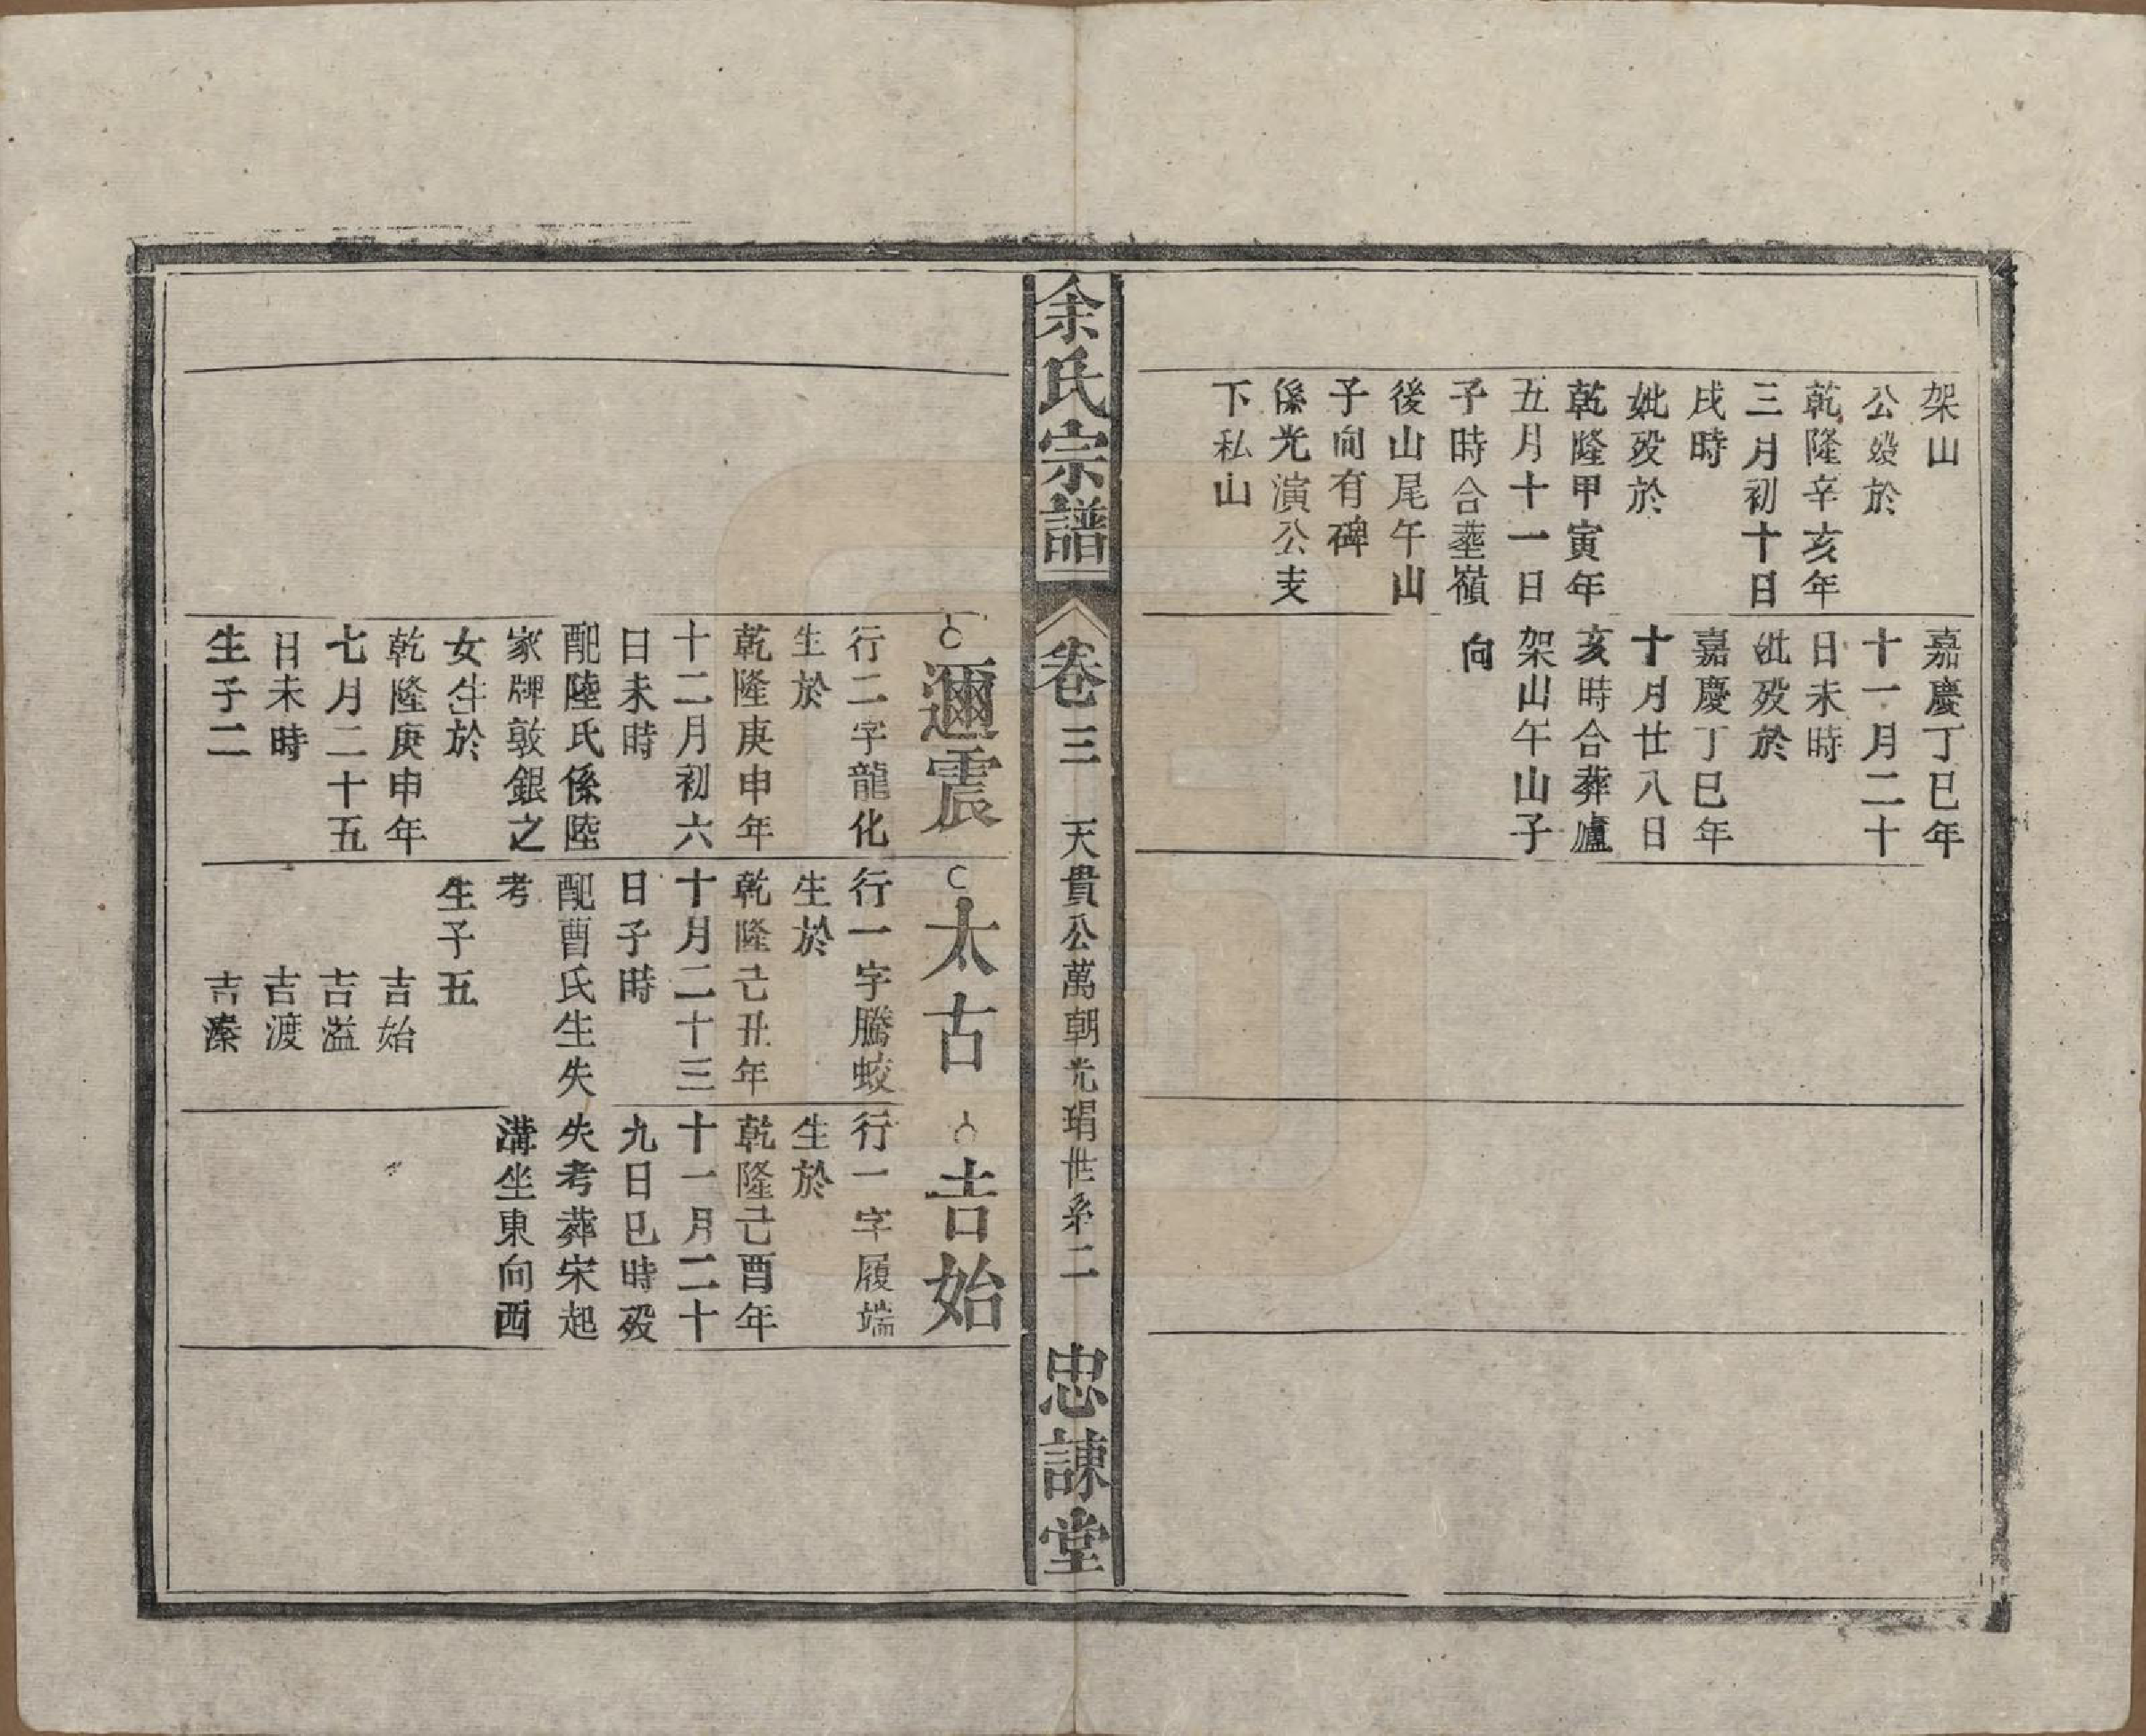 架山
公殁於
乾隆辛亥年
三月初十日
戌時
妣歿於
乾隆甲寅年
五月十一日
子時合塟嶺
後山尾午山
子向有碑
係光演公支
下私山
嘉慶丁巳年
十一月二十
日未時
妣歿於
嘉慶丁巳年
十月廿八日
亥時合葬廬
架山午山子
向
余氏宗譜
卷三
天貴公萬朝光琄世系二
忠諫堂
邇震
行二字龍化
生於
乾隆庚申年
十二月初六
日未時
配陸氏係陸
家牌敦銀之
女生於
乾隆庚申年
七月二十五
日未時
生子二
太古
行一字騰蛟
生於
乾隆己丑年
十月二十三
日子時
配曹氏生失
考
生子五
吉始
吉溢
吉渡
吉溱
吉始
行一字履端
生於
乾隆己酉年
十一月二十
九日巳時殁
失考葬宋起
溝坐東向西